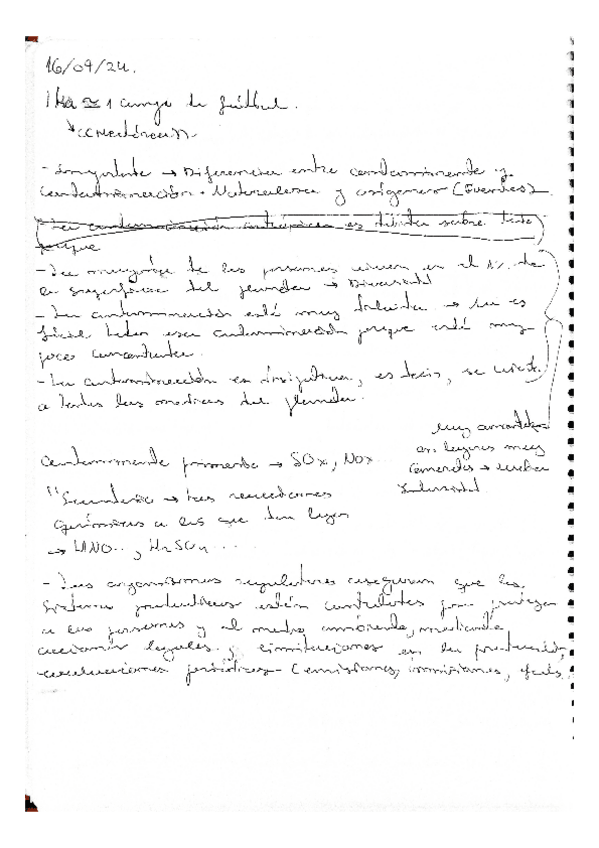 16/09/24.
1 ha ≃ 1 campo de fútbol.
<<Hectárea>>
- Importante → Diferencia entre contaminante y
contaminación. Naturaleza y orígenes (Fuentes)
La contaminación es sobre todo
porque
- La mayoría de las personas viven en el 1% de
la superficie del planeta →
- La contaminación está muy diluida → no es
fácil esa contaminación porque está muy
poco concentrada.
- La contaminación es, es decir, se
a todas las matrices del planeta.
Muy
en lugares muy
→
Contaminante primario → SOx, NOx...
" Secundario → tras reacciones
químicas a las que dan lugar
→ HNO..., H2SO4.....
- Los organismos reguladores aseguran que los
sistemas productivos estén controlados para proteger
a las personas y al medio ambiente, mediante
acciones legales y limitaciones en la producción,
evaluaciones periódicas - (emisiones, inmisiones,